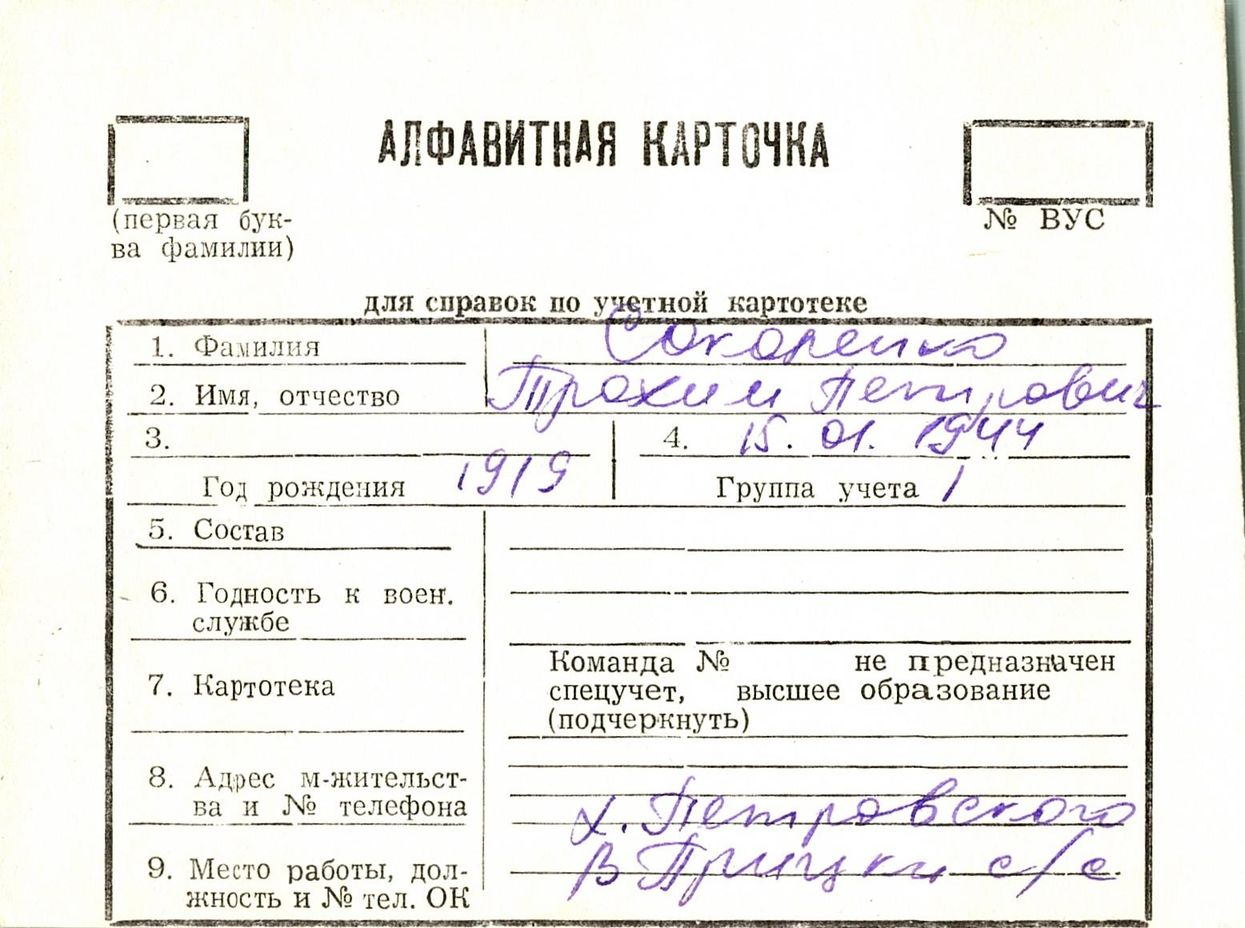 АЛФАВИТНАЯ КАРТОЧКА
(первая бук-
ва фамилии)
№ ВУС
для справок по учетной картотеке
1. Фамилия Сокоренко
2. Имя, отчество Трохим Петрович
3. 4. 15. 01. 1944
Год рождения 1919 Группа учета 1
5. Состав
6. Годность к воен.
службе
7. Картотека
Команда № не предназначен
спецучет, высшее образование
(подчеркнуть)
8. Адрес м-жительст-
ва и № телефона х. Петровского
9. Место работы, дол-
жность и № тел. ОК
с/с